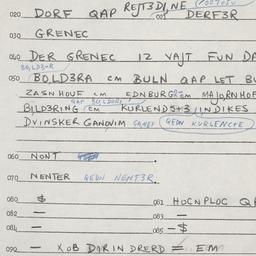 020 DORF QAP REJT3DINE
005 DERF3R
030 GRENEC
040 DER GRENEC 12 VAJT FUN DA
BOLD3R
050 BOLD3RA CM BULN QAP LET BU
ZASNHOUF CM EDNBURG2EM MAJORNHOF
BILD3RING CM KURLENDS+3 INDIKES
DVINSKER GANOVIM QEDN KURLENC+E
060 NONT
070 NENTER QEDN NENT3R
080 $
081 HOCNPLOC QA
082 —
083 —
084 —
085 — $
090 — XOB DIR IN DRERD = EM